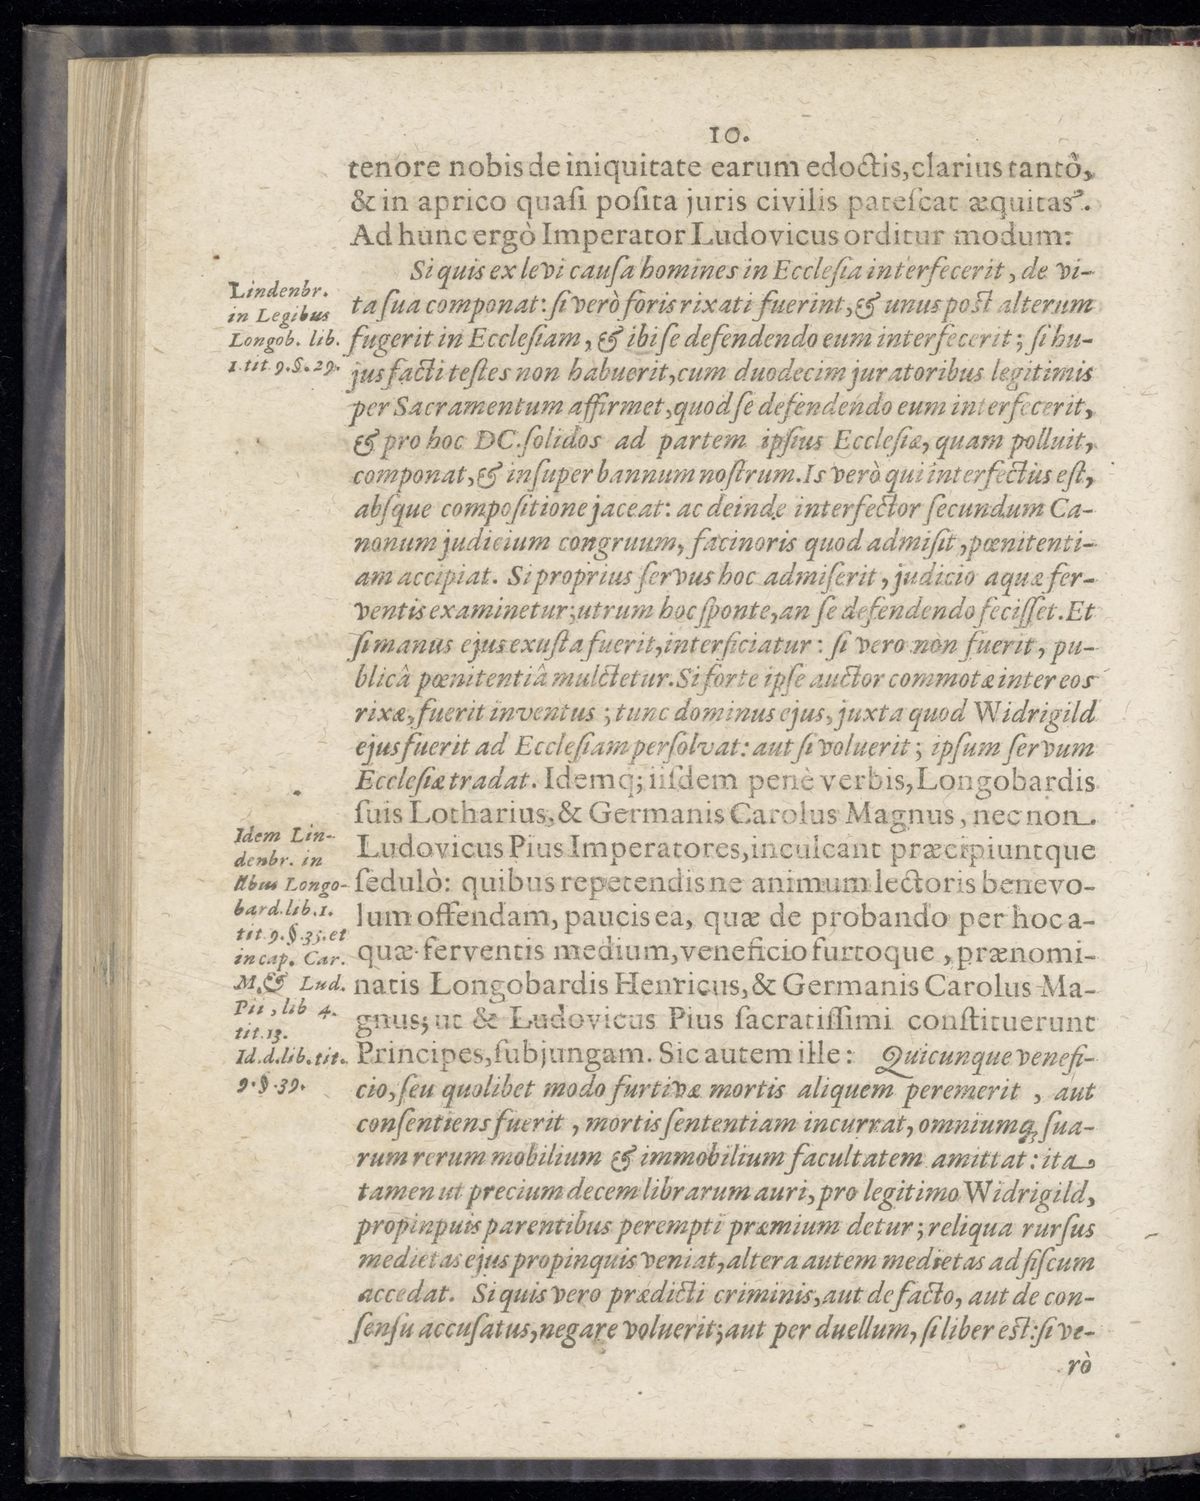 10.
tenore nobis de iniquitate earum edoctis, clarius tantò,
& in aprico quaſi poſita juris civilis pateſcat æquitas.
Ad hunc ergò Imperator Ludovicus orditur modum:
Si quis ex levi cauſa homines in Eccleſia interfecerit, de vi-
ta ſua componat: ſi verò foris rixati fuerint, & unus poſt alterum
fugerit in Eccleſiam, & ibi ſe defendendo eum interfecerit; ſi hu-
jus facti teſtes non habuerit, cum duodecim juratoribus legitimis
per Sacramentum affirmet, quod ſe defendendo eum interfecerit,
& pro hoc DC. ſolidos ad partem ipſius Eccleſiæ, quam polluit,
componat, & inſuper bannum noſtrum. Is verò qui interfectus eſt,
abſque compoſitione jaceat: ac deinde interfector ſecundum Ca-
nonum judicium congruum, facinoris quod admiſit, pœnitenti-
am accipiat. Si proprius ſervus hoc admiſerit, judicio aquæ fer-
ventis examinetur; utrum hoc ſponte, an ſe defendendo feciſſet. Et
ſi manus ejus exuſta fuerit, interficiatur: ſi vero non fuerit, pu-
blicâ pœnitentiâ mulctetur. Si forte ipſe auctor commotæ inter eos
rixæ, fuerit inventus; tunc dominus ejus, juxta quod Widrigild
ejus fuerit ad Eccleſiam perſolvat: aut ſi voluerit; ipſum ſervum
Eccleſiæ tradat. Idemq; iiſdem penè verbis, Longobardis
ſuis Lotharius, & Germanis Carolus Magnus, nec non
Ludovicus Pius Imperatores, inculcant præcipiuntque
ſedulò: quibus repetendis ne animum lectoris benevo-
lum offendam, paucis ea, quæ de probando per hoc a-
quæ ferventis medium, veneficio furtoque, prænomi-
natis Longobardis Henricus, & Germanis Carolus Ma-
gnus; ut & Ludovicus Pius ſacratiſſimi conſtituerunt
Principes, ſubjungam. Sic autem ille: Quicunque venefi-
cio, ſeu quolibet modo furtivæ mortis aliquem peremerit, aut
conſentiens fuerit, mortis ſententiam incurrat, omniumq; ſua-
rum rerum mobilium & immobilium facultatem amittat: ita
tamen ut precium decem librarum auri, pro legitimo Widrigild,
propinpuis parentibus perempti præmium detur; reliqua rurſus
medietas ejus propinquis veniat, altera autem medietas ad fiſcum
accedat. Si quis vero prædicti criminis, aut de facto, aut de con-
ſenſu accuſatus, negare voluerit; aut per duellum, ſi liber eſt: ſi ve-
rò
Lindenbr.
in Legibus
Longob. lib.
1. tit 9. §. 29.
Idem Lin-
denbr. in
Longo-
bard. lib. 1.
tit 9. §. 35. et
in cap. Car.
M. & Lud.
Pii, lib 4.
tit. 13.
Id. d. lib. tit.
9. § .39.